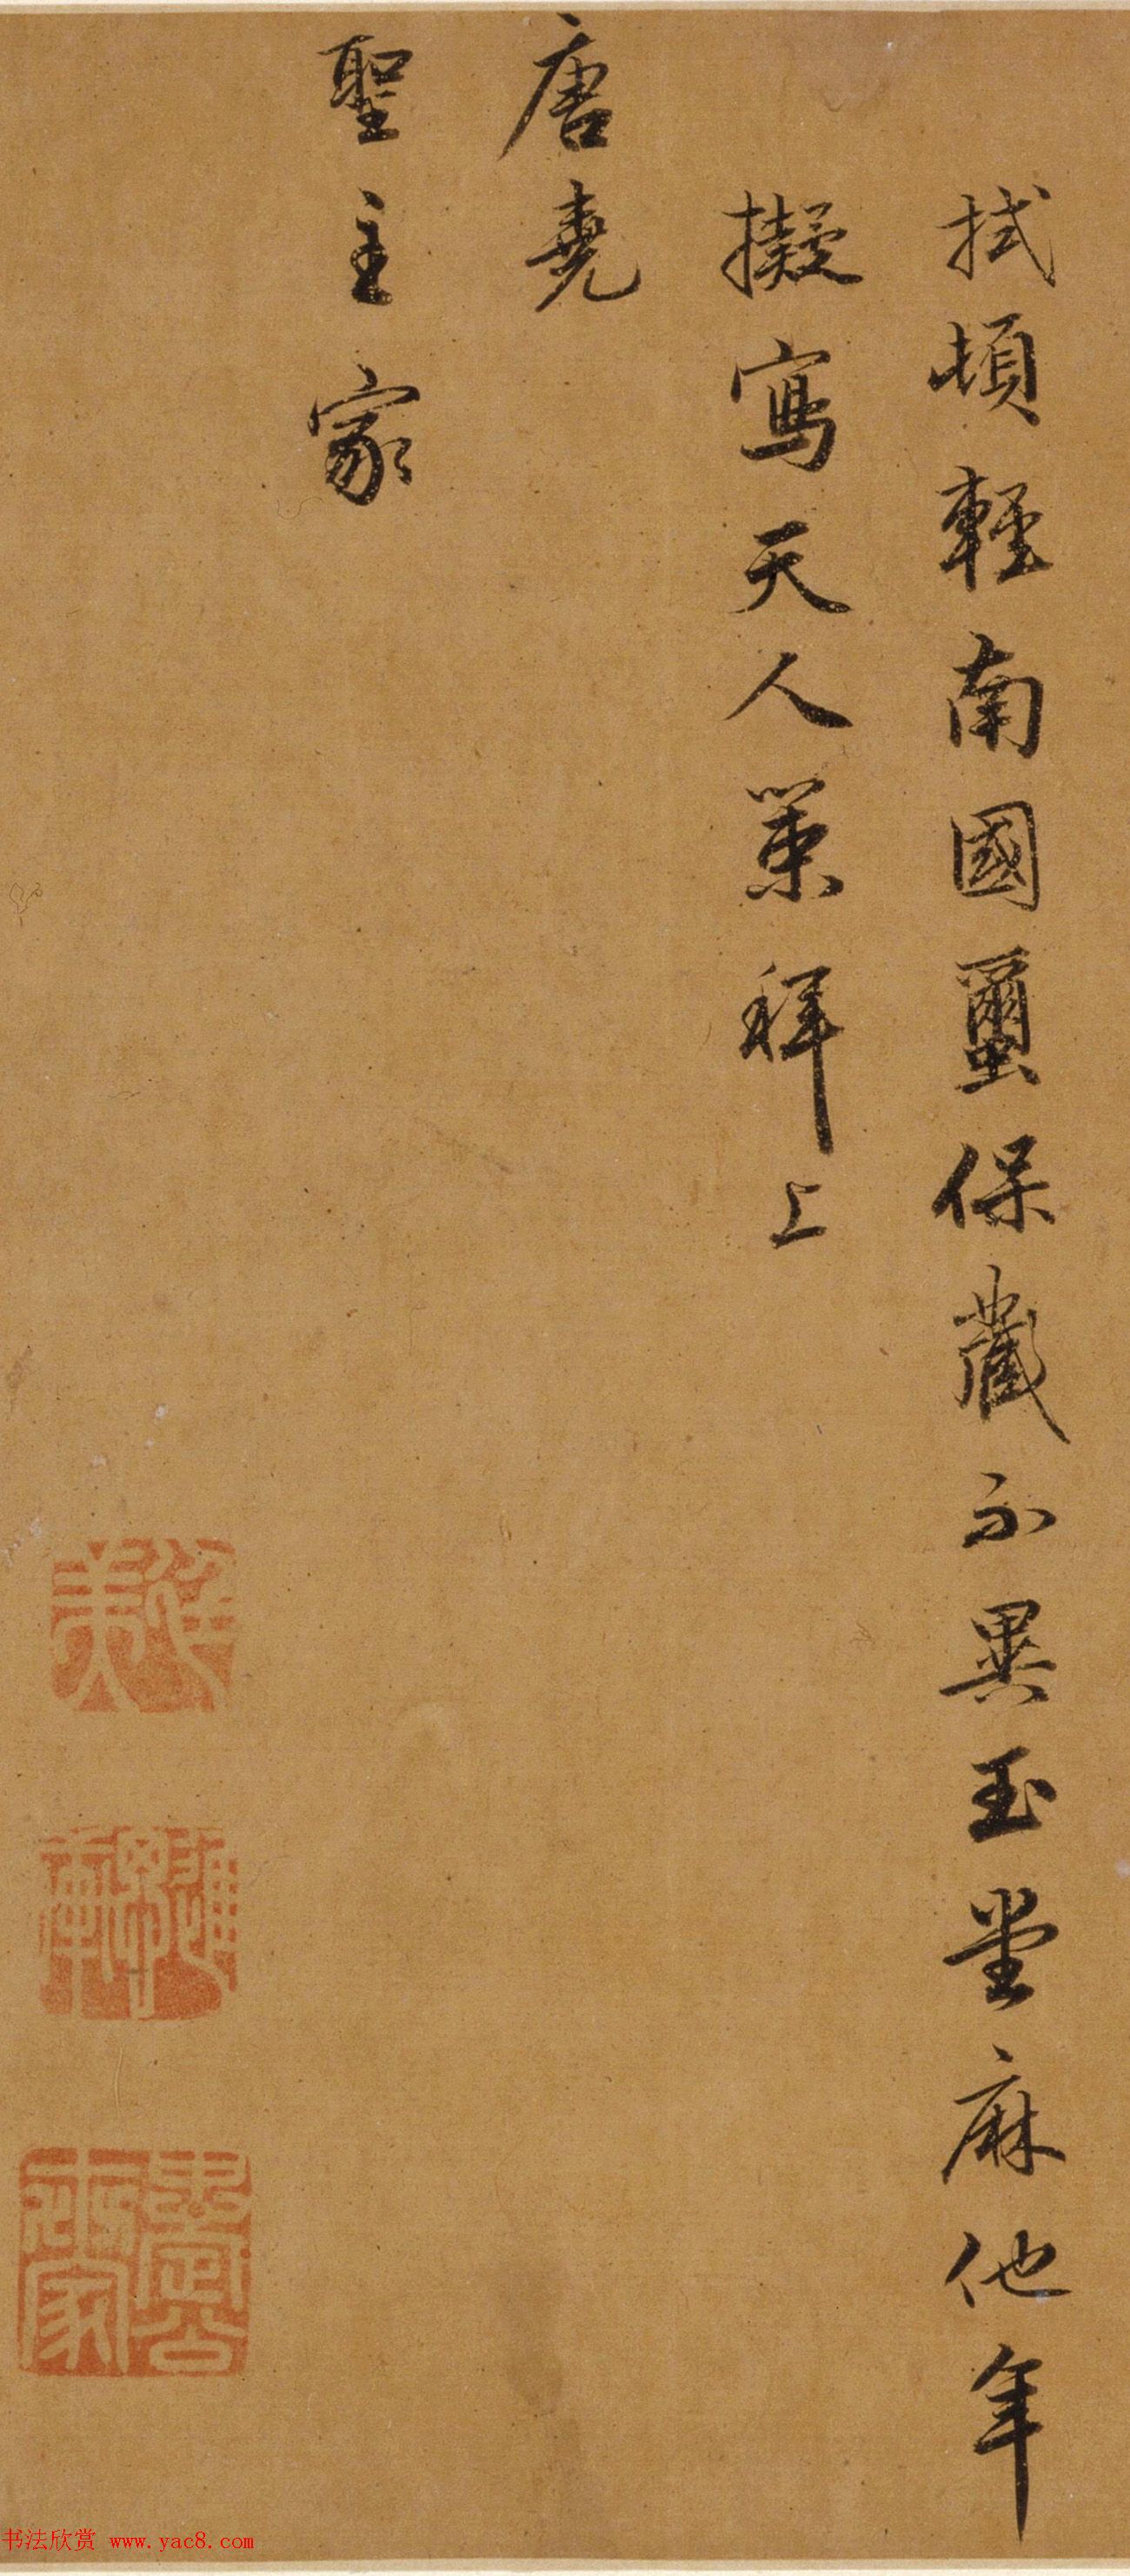 拭頓輕南國蠒保藏不異玉堂麻他年
擬寫天人策拜上
唐堯
聖主家
書法欣赏 www.yac8.com